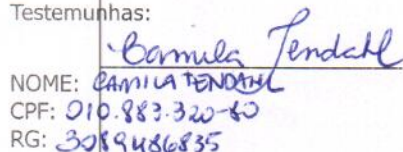 Testemunhas:
Camila Tendahl
NOME: CAMILA TENDAHL
CPF: 010.883.320-80
RG: 3089486835